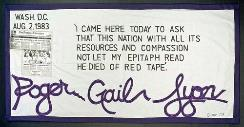 WASH. D.C.
AUG. 2, 1983
I CAME HERE TODAY TO ASK
THAT THIS NATION WITH ALL ITS
RESOURCES AND COMPASSION
NOT LET MY EPITAPH READ
HE DIED OF RED TAPE.
Roger Gail Lyon